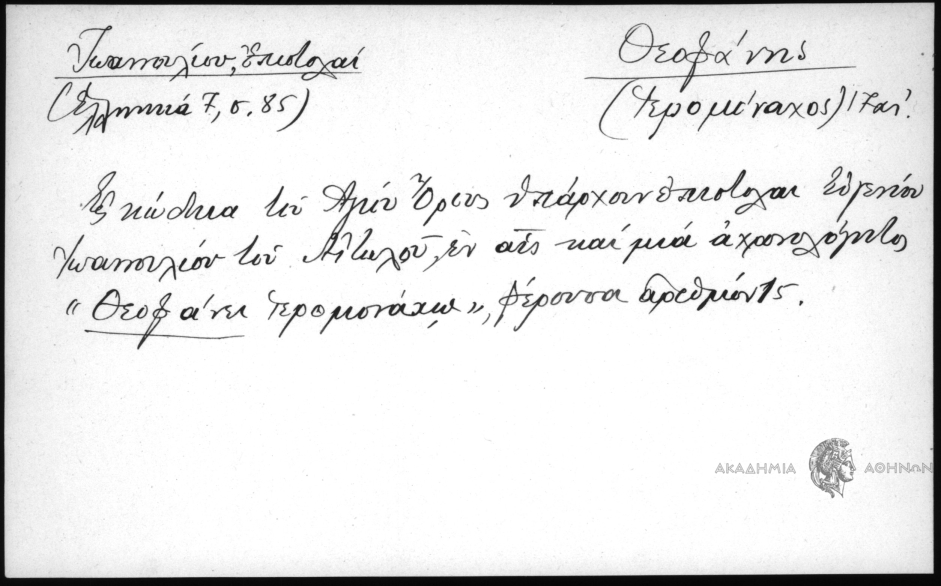 Ἰωαννουλίου, Ἐπιστολαί
(Ἑλληνικά 7, σ. 85)
Θεοφάνης
(Ἱερομόναχος) 17 αἰ.
Ἐξ κώδικα τοῦ Ἁγίου Ὄρους ὑπάρχουν ἐπιστολαι Εὐγενίου
Ἰωαννουλίου τοῦ Αἰτωλοῦ, ἐν αἷς καί μιά ἀχρονολόγητος
"Θεοφάνει ἱερομονάχῳ", φέρουσα ἀριθμόν 15.
ΑΚΑΔΗΜΙΑ ΑΘΗΝΩΝ